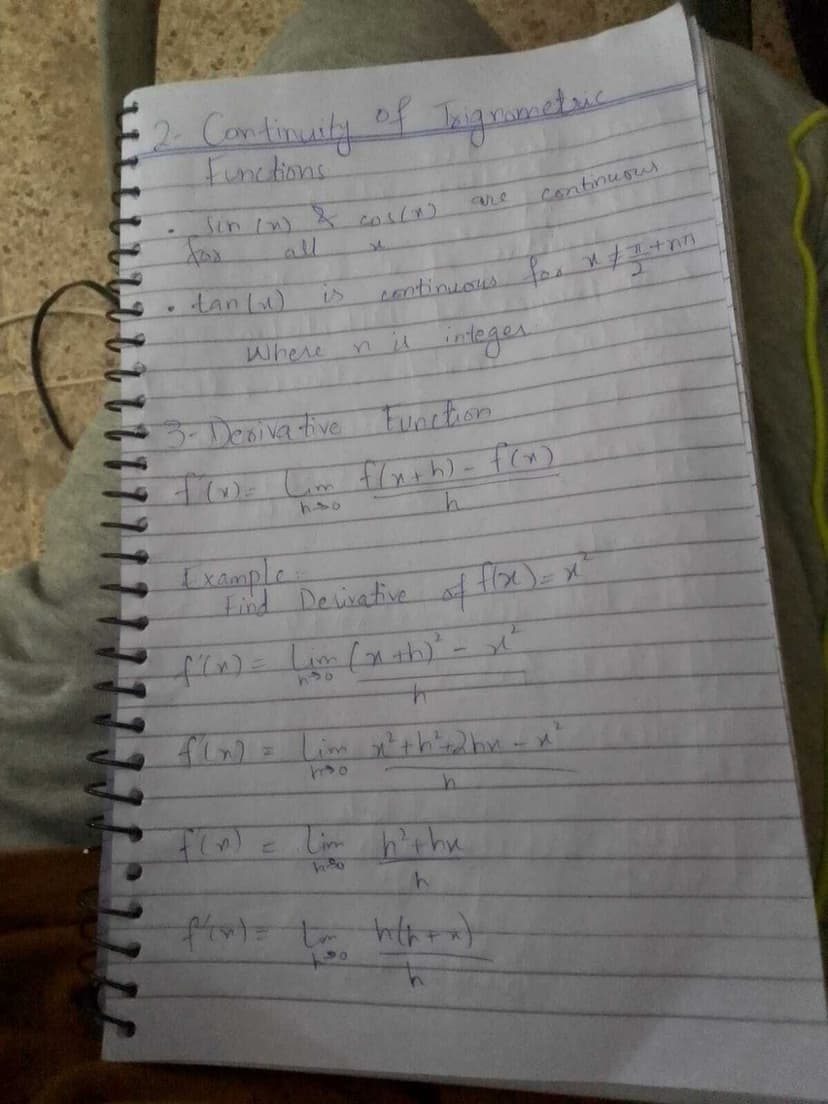 2- Continuity of Trignometric
Functions
• Sin (x) & cos(x) are continuous
for all x
• tan(x) is continuous for x ≠ π/2 + nπ
Where n is integer.
3- Derivative Function
f'(x) = Lim h→0 f(x+h) - f(x) / h
Example:
Find Derivative of f(x) = x²
f'(x) = Lim h→0 (x+h)² - x² / h
f'(x) = Lim h→0 x²+h²+2hx - x² / h
f'(x) = Lim h→0 h²+hx / h
f'(x) = Lim h→0 h(h+x) / h